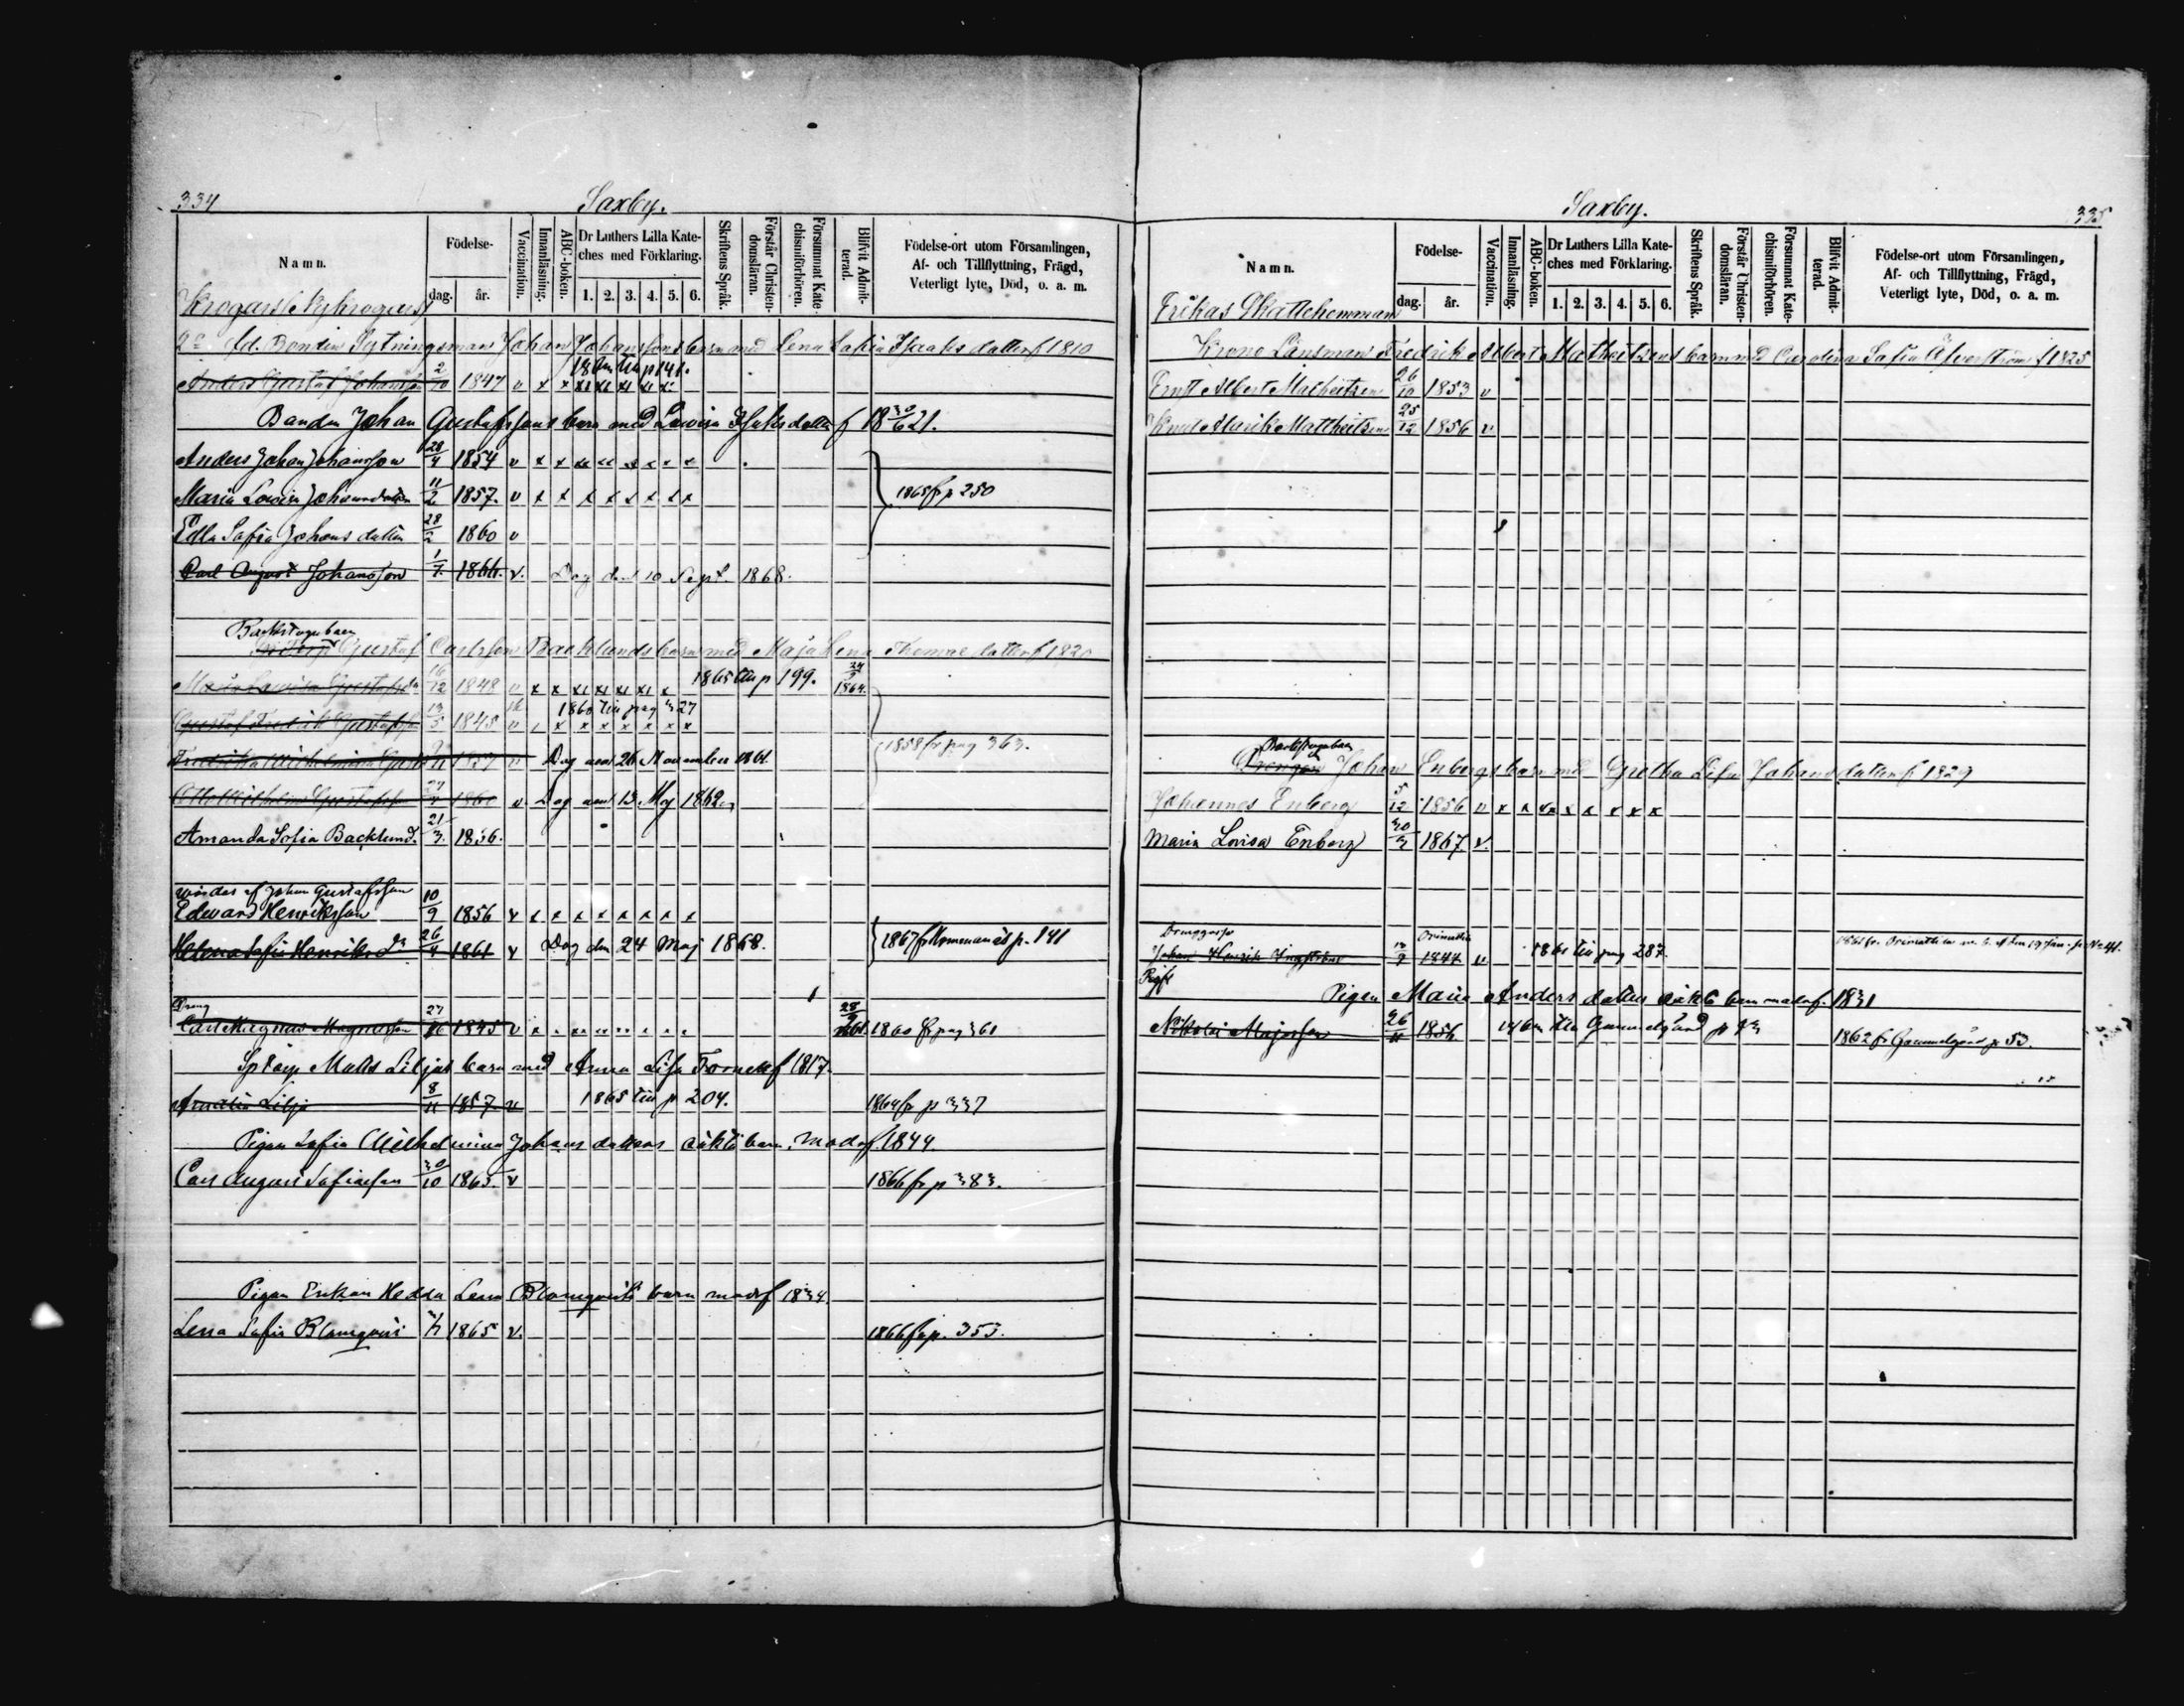 334
Saxby.
Namn.
Födelse-
dag.
år.
Vaccination.
Innanläsning.
ABC-boken.
Dr Luthers Lilla Kate-
ches med Förklaring.
1. 2. 3. 4. 5. 6.
Skriftens Språk.
Förstår Christen-
domsläran.
Försummat Kate-
chismiförhören.
Blifvit Admit-
terad.
Födelse-ort utom Församlingen,
Af- och Tillflyttning, Frägd,
Veterligt lyte, Död, o. a. m.
fd. Bonden Sytningsman Johan Johanssons barn med Lena Sofia Isaaks dotter f 1810
Anders Gustaf Johansson 2/10 1847 v x x
Bonden Johan Gustafssons barn med Lovisa Isaks dotter f 18 30/6 21.
Anders Johan Johansson 28/4 1854 v x x
Maria Lovisa Johansdotter 11/2 1857. v x x x x x x x x 1865 fr p 250
Edla Sofia Johans dotter 28/2 1860 v
Carl August Johansson 1/7 1866. v. Dog den 10 Sept 1868.
Backstugubarn
Gustaf Carlsson Backlunds barn med Maja Lena Thomae dotter f 1820
Maja Lovisa Gustafsd 16/12 1848 v x x 1865 till p 199. 1864.
Gustaf Fredrik Gustafsson 13/5 1845 v 1860 till pag 327
Fredrika Wilhelmina 1857 v Dog den 26 November 1861. 1858 fr pag 363.
Otto Wilhelm Gustafsson 1860 v Dog den 13 Maj 1862
Amanda Sofia Backlund. 21/3. 1856.
vårdas af Johan Gustafsson
Edward Henriksson 10/9 1856 v x x x x x x x x
Helena Sofia Henriksdr 26/4 1861 v Dog den 24 Maj 1868. 1867 fr Kommanäs p. 141
Dreng
Carl Magnus Magnusson 27/10 1845 v 28 1861. 1860 fr pag 361
Matts Liljas barn med Anna Lisa Tornek f 1817.
Amalia Lilja 8/11 1857. v 1865 till p 204. 1864 fr p 337
Pigan Sofia Wilhelmina Johans dotters oäkta barn. mod. f. 1844.
Carl August Sofiasson 30/10 1865. v 1866 fr p 383.
Pigan Enkan Hedda Lena Blomqvists barn mod f 1834.
Lena Sofia Blomqvist 1865 v. 1866 fr p. 353.
Saxby.
335
Namn.
Födelse-
dag.
år.
Vaccination.
Innanläsning.
ABC-boken.
Dr Luthers Lilla Kate-
ches med Förklaring.
1. 2. 3. 4. 5. 6.
Skriftens Språk.
Förstår Christen-
domsläran.
Försummat Kate-
chismiförhören.
Blifvit Admit-
terad.
Födelse-ort utom Församlingen,
Af- och Tillflyttning, Frägd,
Veterligt lyte, Död, o. a. m.
Erikas Skattehemman
Krono Länsman Fredrik Albert Matheitzens barn med Carolina Sofia f 1825
Ernst Albert Matheitzen 26/10 1853 v
Knut Alarik Mattheitzen 25/12 1856 v.
Backstugubarn
Drengen Johan Enbergs barn med Gretha Lisa Johans dotter f 1829
Johannes Enberg 5/12 1856 v x x x x x x x x
Maria Lovisa Enberg 30/3 1867. v.
Drenggosse
Orimattila
Johan Henrik 1847 v 1861 till pag 287.
Pigan Maria Anders dotters oäkta barn mod. f. 1831
Nikolai Majasson 26/11 1856. till Gammelgård p 1862 fr Gammelgård p 53.